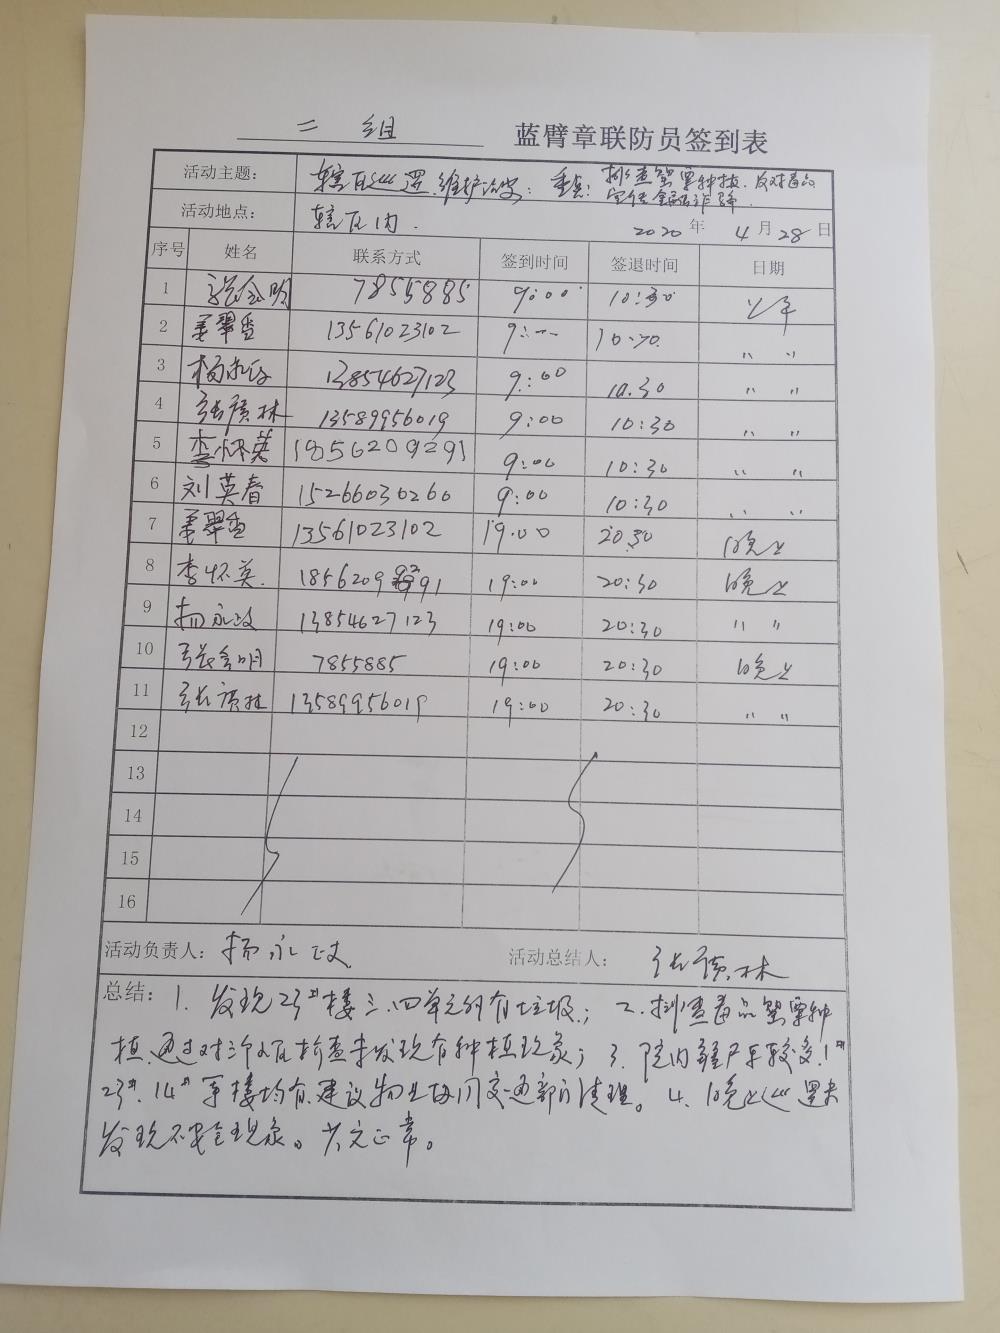 二组 蓝臂章联防员签到表
活动主题: 辖区巡逻、维护治安; 重点: 排查罂粟种植、反对毒品
宣传金融诈骗.
活动地点: 辖区内. 2020年 4月28日
序号 姓名 联系方式 签到时间 签退时间 日期
1 张金明 7855885 9:00 10:30 上午
2 姜翠香 13561023102 9:-- 10:30 〃 〃
3 杨永政 13854627123 9:00 10.30 〃 〃
4 张广林 13589956019 9:00 10:30 〃 〃
5 李怀英 18562099291 9:00 10:30 〃 〃
6 刘英春 15266030260 9:00 10:30 〃 〃
7 姜翠香 13561023102 19.00 20:30 晚上
8 李怀英. 18562099291 19:00 20:30 晚上
9 杨永政 13854627123 19:00 20:30 〃 〃
10 张金明 7855885 19:00 20:30 晚上
11 张广林 13589956019 19:00 20:30 〃 〃
12
13
14
15
16
活动负责人: 杨永政 活动总结人: 张广林
总结: 1. 发现23#楼三.四单元外有垃圾; 2. 排查毒品罂粟种
植,通过对小区检查未发现有种植现象; 3. 院内废旧车较多,1#
23#.14#等楼均有,建议物业协同交通部门清理。4. 晚上巡逻未
发现不安全现象。一切正常。